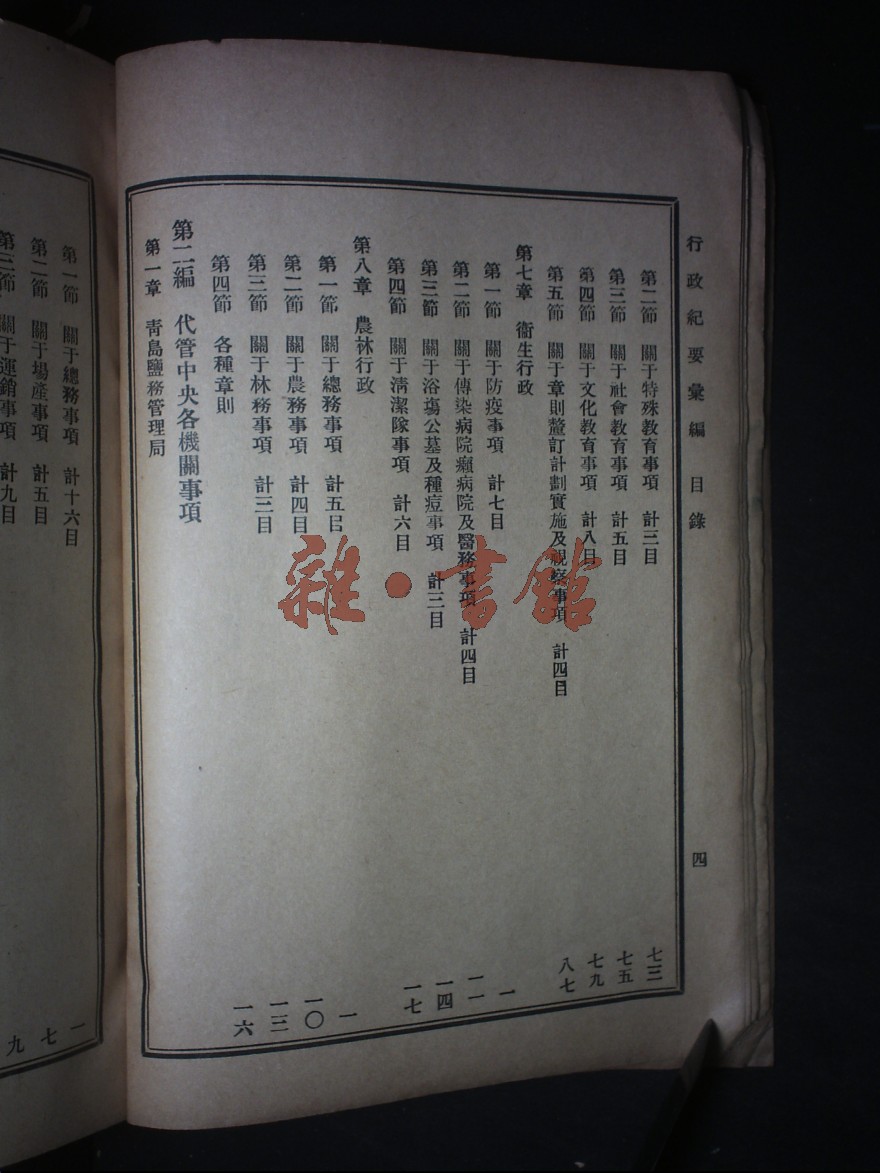 行政紀要彙編 目錄 四
第二節 關于特殊教育事項 計三目 七三
第三節 關于社會教育事項 計五目 七五
第四節 關于文化教育事項 計八目 七九
第五節 關于章則釐訂計劃實施及視察事項 計四目 八七
第七章 衞生行政
第一節 關于防疫事項 計七目 一
第二節 關于傳染病院癩病院及醫務事項 計四目 一一
第三節 關于浴塲公墓及種痘事項 計三目 一四
第四節 關于淸潔隊事項 計六目 一七
第八章 農林行政
第一節 關于總務事項 計五目 一
第二節 關于農務事項 計四目 一〇
第三節 關于林務事項 計三目 一三
第四節 各種章則 一六
第二編 代管中央各機關事項
第一章 靑島鹽務管理局
第一節 關于總務事項 計十六目 一
第二節 關于塲產事項 計五目 七
第三節 關于運銷事項 計九目 九
雜·書館